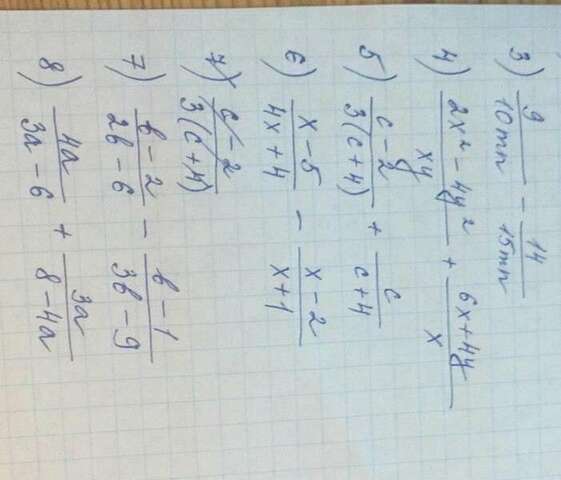 3) 9/10mn - 14/15mn
4) 2x² - 4y²/xy + 6x + 4y/x
5) c - 2/3(c + 4) + c/c + 4
6) x - 5/4x + 4 - x - 2/x + 1
7) c - 2/3(c + 4)
7) b - 2/2b - 6 - b - 1/3b - 9
8) 4a/3a - 6 + 3a/8 - 4a